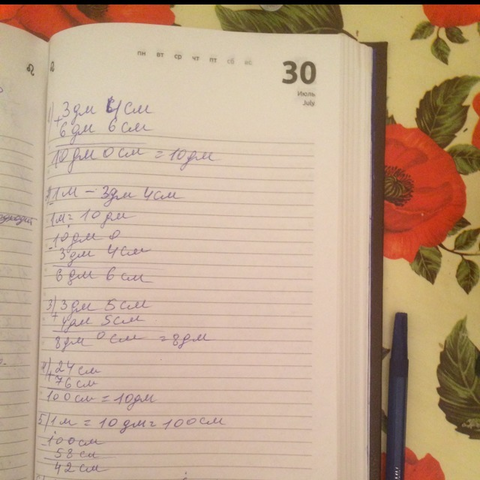 пн вт ср чт пт сб вс
30
Июль
July
1) 3дм 4см
+ 6дм 6см
10дм 0см = 10дм
2) 1м - 3дм 4см
1м = 10дм
10дм 0
- 3дм 4см
6дм 6см
3) 3дм 5см
+ 4дм 5см
8дм 0см = 8дм
4) 24см
+ 76см
100см = 10дм
5) 1м = 10дм = 100см
- 100см
58см
42см